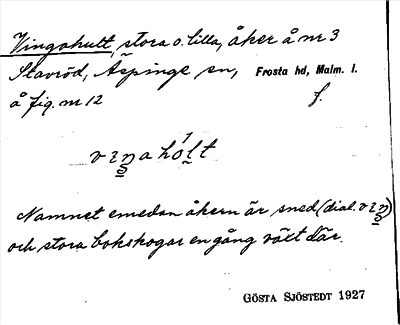 Vingahult, stora o. lilla, åker å nr 3
Stavröd, Äspinge sn, Frosta hd, Malm. l.
å fig. nr 12 f.
vinahólt
Namnet emedan åkern är sned (dial. vin)
och stora bokskogar en gång växt där.
GÖSTA SJÖSTEDT 1927